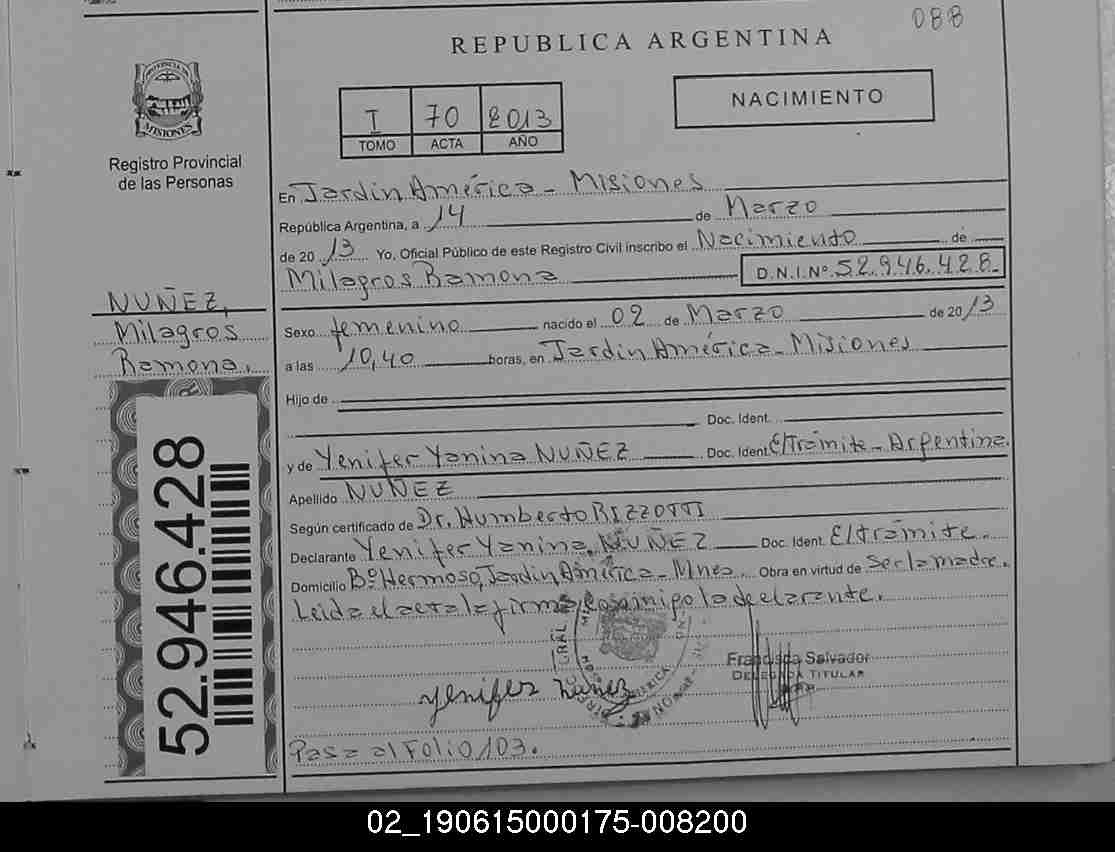 088
REPUBLICA ARGENTINA
PROVINCIA DE
MISIONES
Registro Provincial
de las Personas
I 70 2013
TOMO ACTA AÑO
NACIMIENTO
En Jardín América - Misiones
República Argentina, a 14 de Marzo
de 2013 Yo. Oficial Público de este Registro Civil inscribo el Nacimiento de
Milagros Ramona D.N.I.Nº 52.946.428.
NUÑEZ,
Milagros
Ramona.
Sexo femenino nacido el 02 de Marzo de 2013
a las 10,40 horas, en Jardín América - Misiones
Hijo de
Doc. Ident.
y de Yenifer Yanina NUÑEZ Doc. Ident. E/trámite - Argentina.
Apellido NUÑEZ
Según certificado de Dr. Humberto RIZZOTTI
Declarante Yenifer Yanina NUÑEZ Doc. Ident. E/trámite.
Domicilio Bº Hermoso, Jardín América - Mnes. Obra en virtud de ser la madre.
Leida el acta la firma conmigo la declarante.
52.946.428
Francisca Salvador
DELEGADA TITULAR
Yenifer Nuñez
Pasa al Folio 103.
02_190615000175-008200